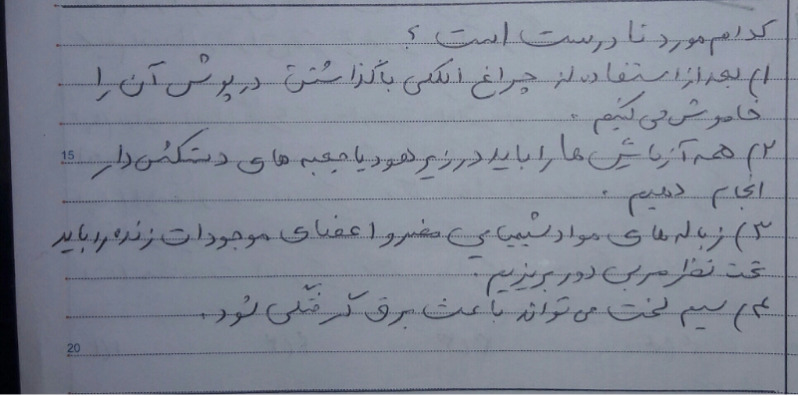 کدام مورد نادرست است ؟
۱) بعد از استفاده از چراغ الکلی با گذاشتن درپوش آن را
خاموش می کنیم .
15
۲) همه آزمایش ها را باید در زیر هود یا جعبه های دستکش دار
انجام دهیم .
۳) زباله های مواد شیمیایی مضر و اعضای موجودات زنده را باید
تحت نظر مربی دور بریزیم .
۴) سیم لخت می تواند باعث برق گرفتگی شود .
20